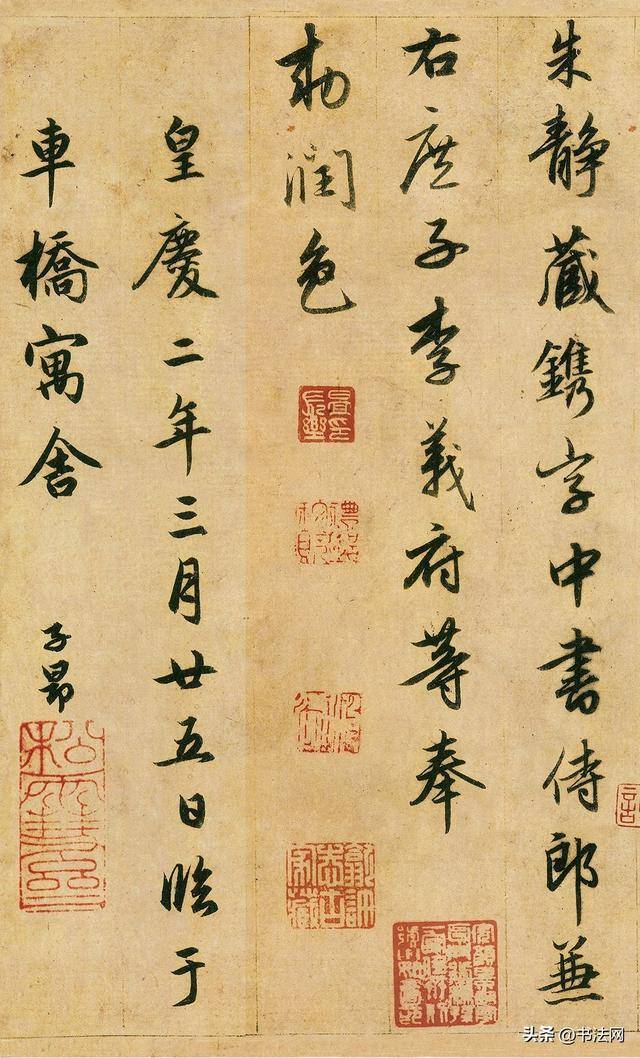 朱靜藏鐫字中書侍郎兼
右庶子李義府等奉
勑潤色
皇慶二年三月廿五日臨于
車橋寓舍
子昂
头条 @书法网